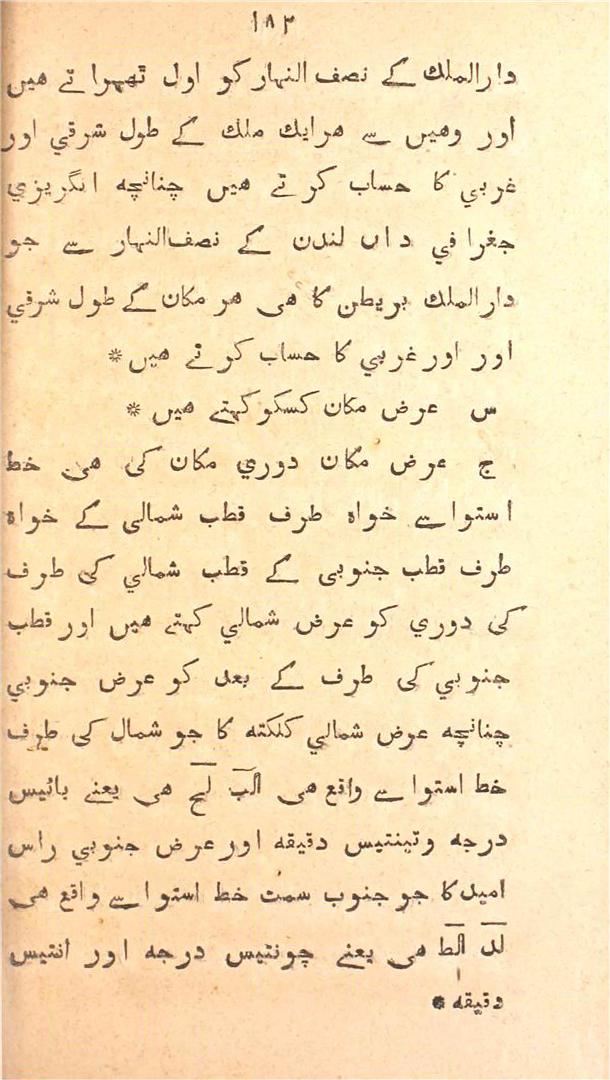 ۱۸۲
دارالملك کے نصف النہار کو اول تھہراتے هیں
اور وهیں سے هرایك ملك کے طول شرقي اور
غربي کا حساب کرتے هیں چنانچه انگریزي
جغرافي داں لندن کے نصف‌النہار سے جو
دارالملك بریطن کا هی هر مکان کے طول شرقي
اور اور غربي کا حساب کرتے هیں *
س عرض مکان کسکو کہتے هیں *
ج عرض مکان دوري مکان کی هی خط
استواسے خواہ طرف قطب شمالی کے خواہ
طرف قطب جنوبی کے قطب شمالي کی طرف
کی دوري کو عرض شمالي کہتے هیں اور قطب
جنوبي کی طرف کے بعد کو عرض جنوبي
چنانچه عرض شمالي کلکته کا جو شمال کی طرف
خط استواسے واقع هی الب لج هی یعنے بائیس
درجه وتینتیس دقیقه اور عرض جنوبي راس
امید کا جو جنوب سمت خط استواسے واقع هی
لد الط هی یعنے چونتیس درجه اور انتیس
دقیقه *